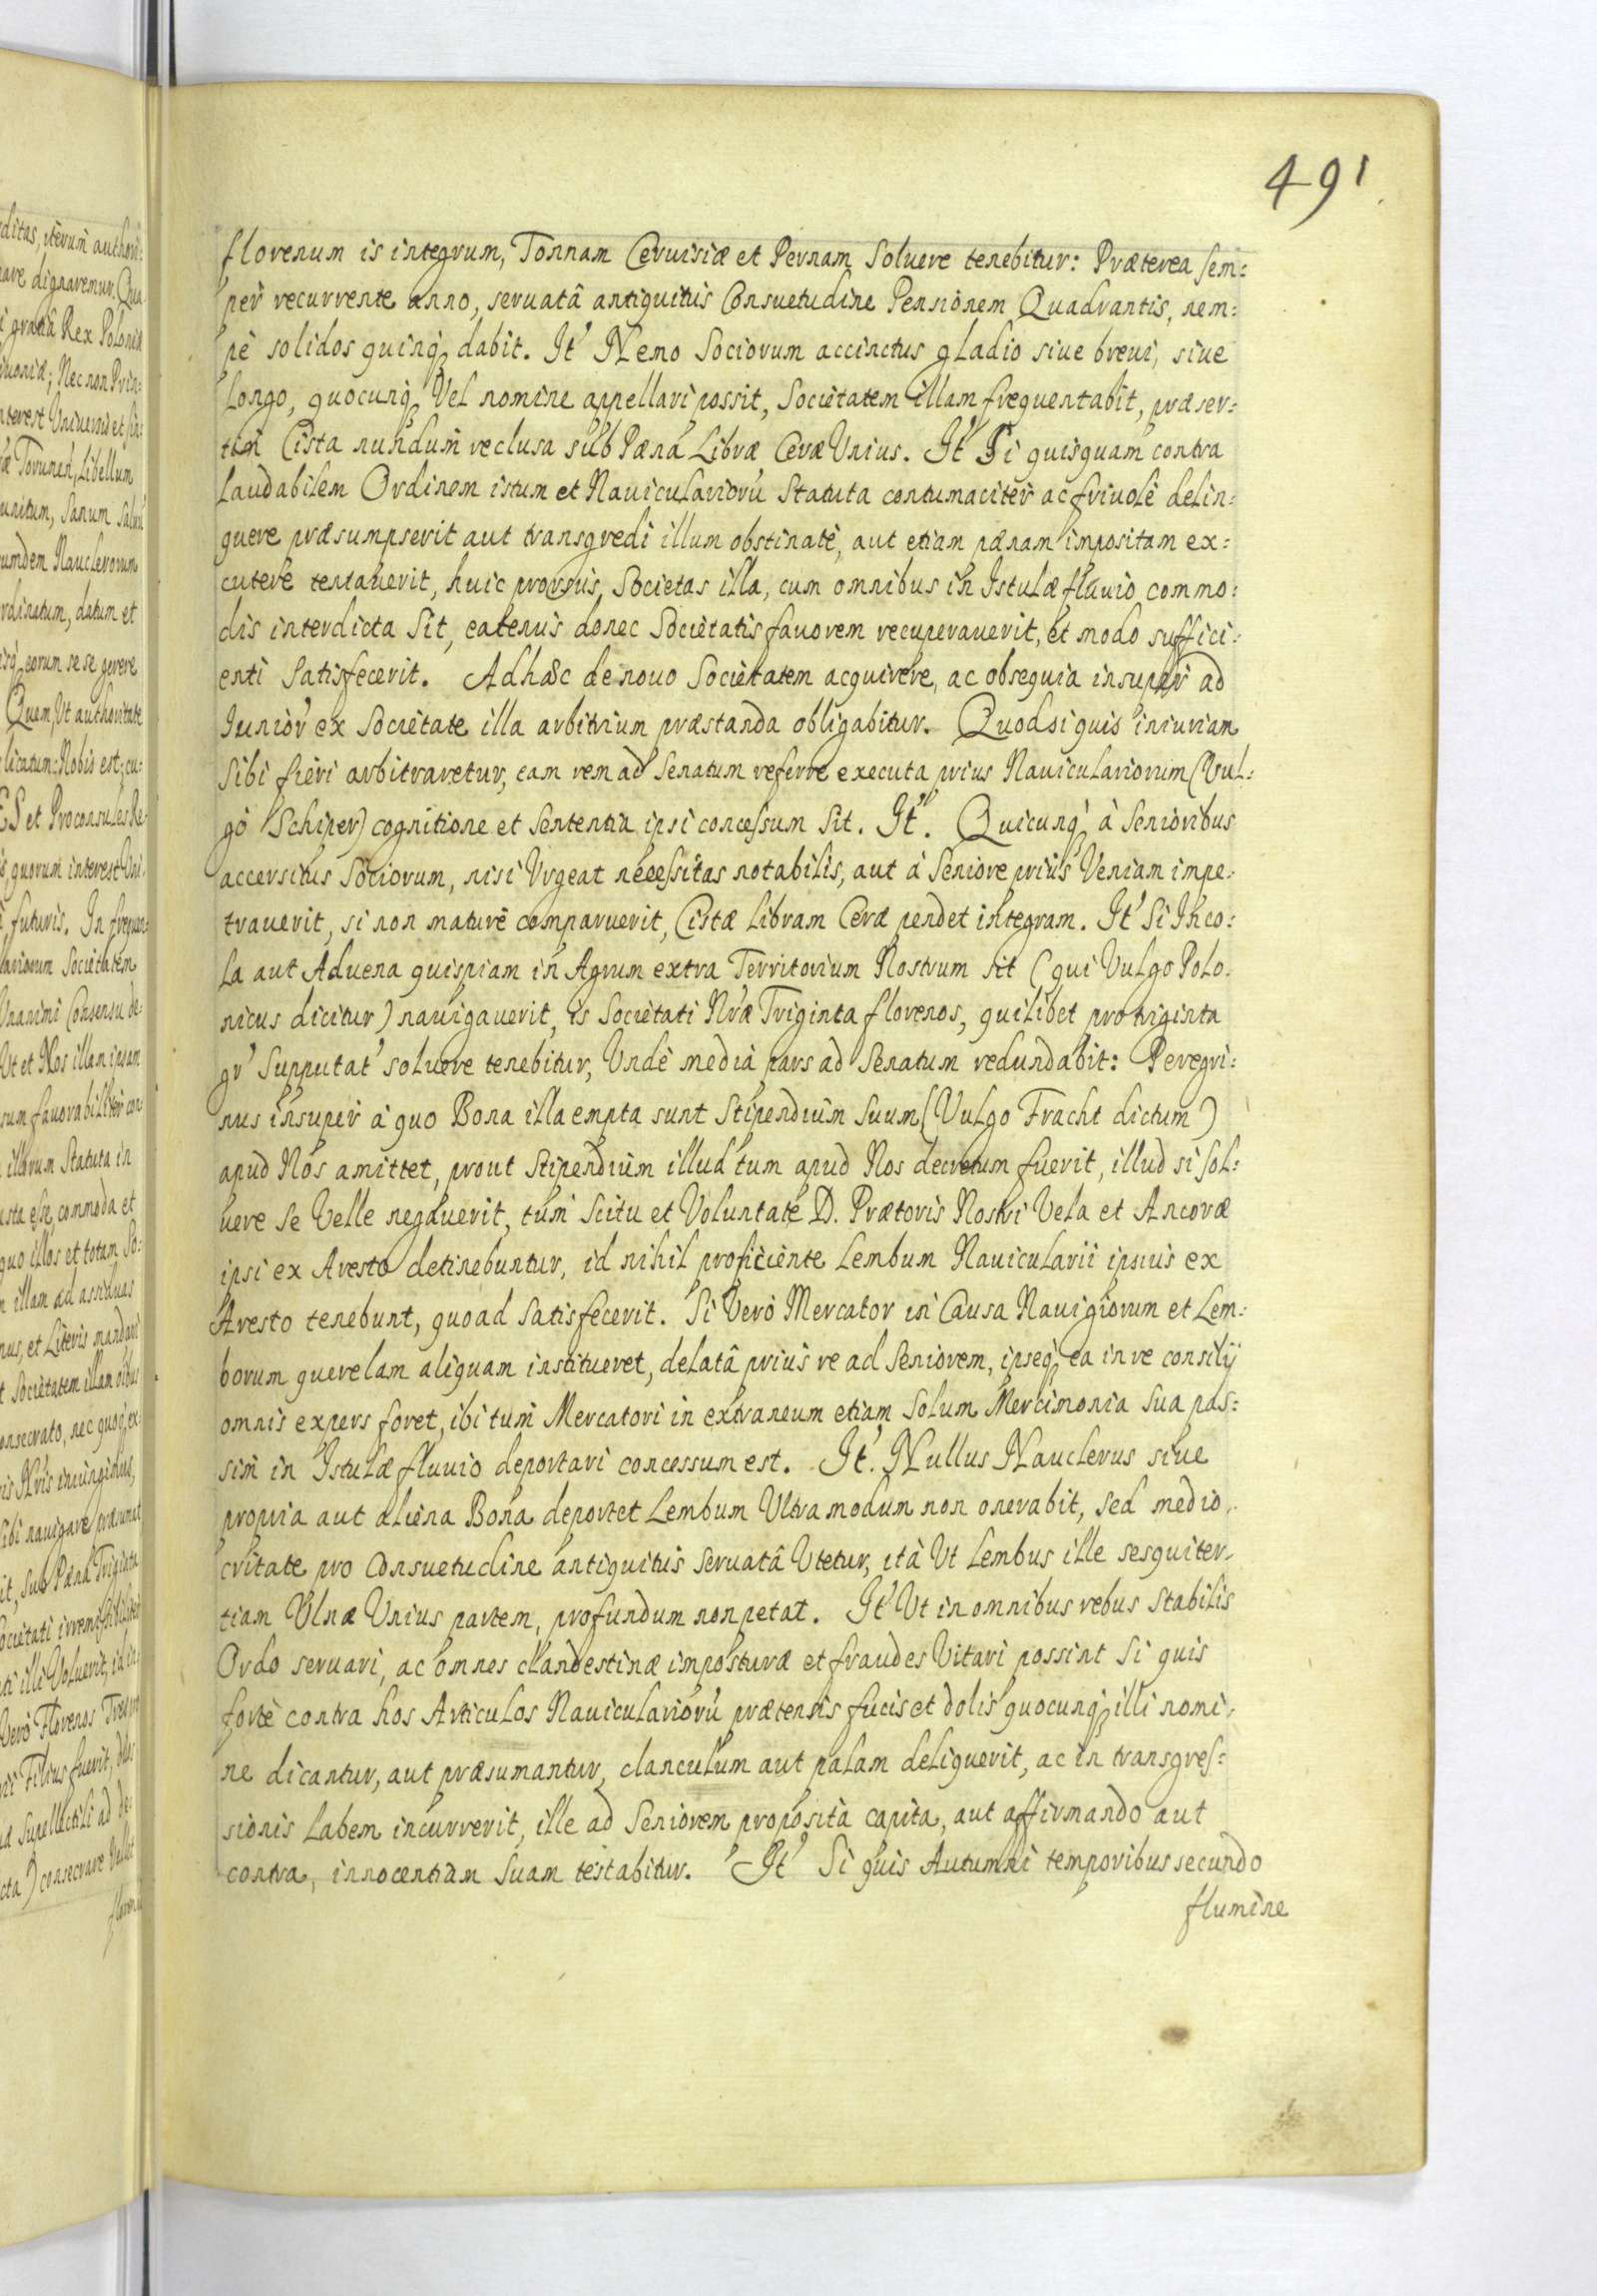 491
florenum is integrum, Tonnam Ceruisiæ et Pernam Soluere tenebitur: Præterea sem:
per recurrente anno, seruatâ antiquitùs Consuetudine Pensionem Quadrantis, nem:
pè solidos quinq; dabit. It' Nemo Sociorum accinctus gladio siue breui, siue
longo, quocunq; Vel nomine appellari possit, Societatem illam frequentabit, præser:
tim Cista nundum reclusa sub Pæna Libræ Ceræ Vnius. It' Si quisquam contra
laudabilem Ordinem istum et Nauiculariorū Statuta contumaciter ac friuolè delin:
quere præsumpserit aut transgredi illum obstinatè, aut etiam pænam impositam ex:
cutere tentauerit, huic prorsus, Societas illa, cum omnibus in Istulæ fluuio commo:
dis interdicta Sit, eatenus donec Societatis fauorem recuperauerit, et modo suffici:
enti Satisfecerit. Adhæc de nouo Societatem acquirere, ac obsequia insuper ad
Iunior' ex Societate illa arbitrium præstanda obligabitur. Quodsi quis iniuriam
Sibi fieri arbitraretur, eam rem ad Senatum referre executa prius Nauiculariorum (Vul:
gò Schiper) cognitione et Sententia ipsi concessum Sit. It'. Quicunq; à Senioribus
accersitus Sociorum, nisi Vrgeat necessitas notabilis, aut à Seniore priùs Veniam impe:
trauerit, si non maturè comparuerit, Cistæ libram Ceræ pendet integram. It' Si Inco:
la aut Aduena quispiam in Agrum extra Territorium Nostrum sit (qui Vulgo Polo:
nicus dicitur) nauigauerit, is Societati Nræ Triginta florenos, quilibet pro triginta
gr' Supputat' soluere tenebitur, Vndè media pars ad Senatum redundabit: Peregri:
nus insuper à quo Bona illa empta sunt Stipendium Suum (Vulgo Fracht dictum)
apud Nos amittet, prout Stipendium illud tum apud Nos decretum fuerit, illud si sol:
uere Se Velle negauerit, tum Scitu et Voluntate D. Prætoris Nostri Vela et Ancoræ
ipsi ex Aresto detinebuntur, id nihil proficiente Lembum Nauicularii ipsius ex
Aresto tenebunt, quoad Satisfecerit. Si Verò Mercator in Causa Nauigiorum et Lem:
borum querelam aliquam institueret, delatâ priùs re ad Seniorem, ipseq; ea in re consilij
omnis expers foret, ibi tum Mercatori in extraneum etiam Solum Mercimonia Sua pas:
sim in Istulæ fluuio deportari concessum est. It'. Nullus Nauclerus siue
propria aut aliena Bona deportet Lembum Vltra modum non onerabit, sed medio,
critate pro Consuetudine antiquitùs Seruatâ Vtetur, ità Vt Lembus ille sesquiter,
tiam Vlnæ Vnius partem, profundum non petat. It' Vt in omnibus rebus Stabilis
Ordo seruari, ac omnes clandestinæ imposturæ et fraudes Vitari possint Si quis
fortè contra hos Articulos Nauiculariorū prætensis fucis et dolis quocunq; illi nomi,
ne dicantur, aut præsumantur, clanculum aut palam deliquerit, ac in transgres:
sionis Labem incurrerit, ille ad Seniorem propositâ capita, aut affirmando aut
contra, innocentiam Suam testabitur. It' Si quis Autumni temporibus secundo
flumine